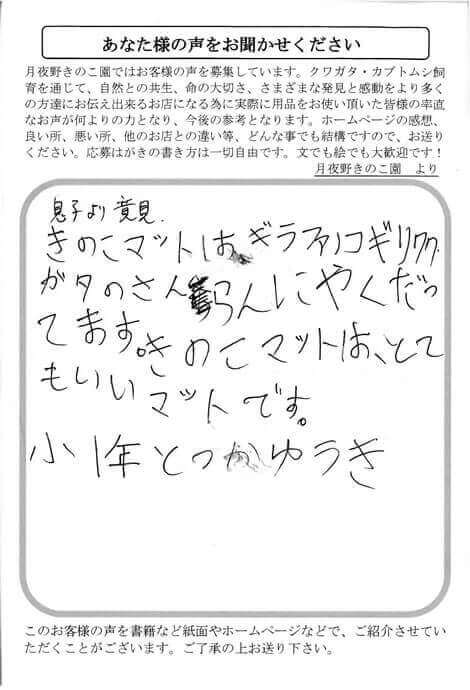 あなた様の声をお聞かせください
月夜野きのこ園ではお客様の声を募集しています。クワガタ・カブトムシ飼
育を通じて、自然との共生、命の大切さ、さまざまな発見と感動をより多く
の方達にお伝え出来るお店になる為に実際に用品をお使い頂いた皆様の率直
なお声が何よりの力となり、今後の参考となります。ホームページの感想、
良い所、悪い所、他のお店との違い等、どんな事でも結構ですので、お送り
ください。応募はがきの書き方は一切自由です。文でも絵でも大歓迎です！
月夜野きのこ園　より
息子より意見.
きのこマットは、ギラファノコギリクワ
ガタのさんらんにやくだっ
てます。きのこマットは、とて
もいいマットです。
小1年とつかゆうき
このお客様の声を書籍など紙面やホームページなどで、ご紹介させてい
ただくことがございます。ご了承の上お送り下さい。